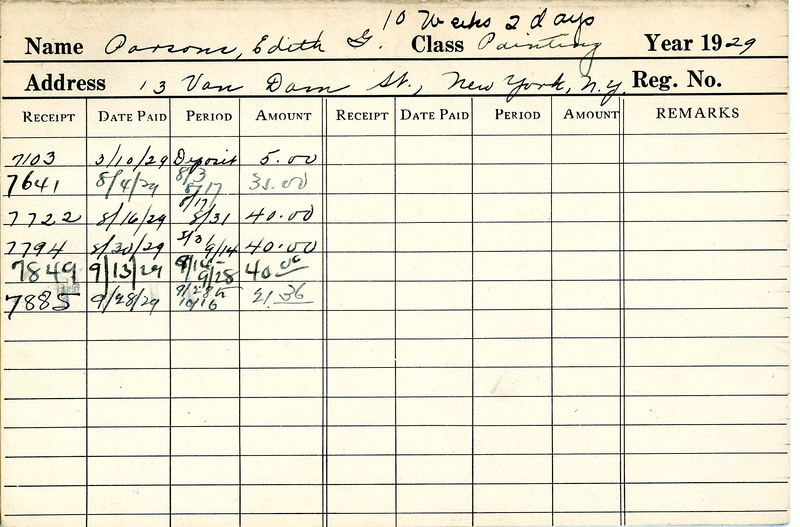 10 Weeks 2 days
Name Parsons, Edith G. Class Painting Year 1929
Address 13 Van Dam St., New York, N.Y. Reg. No.
RECEIPT DATE PAID PERIOD AMOUNT RECEIPT DATE PAID PERIOD AMOUNT REMARKS
7103 3/10/29 Deposit 5.00
7641 8/4/29 8/3 8/17 35.00
7722 8/16/29 8/17 8/31 40.00
7794 8/30/29 9/14 40.00
7849 9/13/29 9/14 9/28 40.00
7885 9/28/29 9/28 10/16 51.36